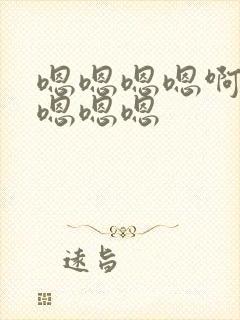 嗯嗯嗯嗯啊
嗯嗯嗯
远旨